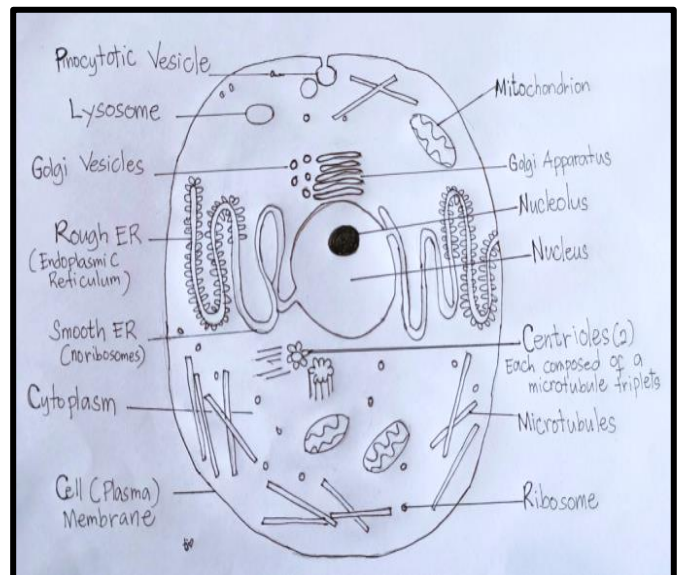 Pinocytotic Vesicle
Lysosome
Golgi Vesicles
Rough ER
(Endoplasmic
Reticulum)
Smooth ER
(no ribosomes)
Cytoplasm
Cell (Plasma)
Membrane
Mitochondrion
Golgi Apparatus
Nucleolus
Nucleus
Centrioles (2)
Each composed of a
microtubule triplets
Microtubules
Ribosome